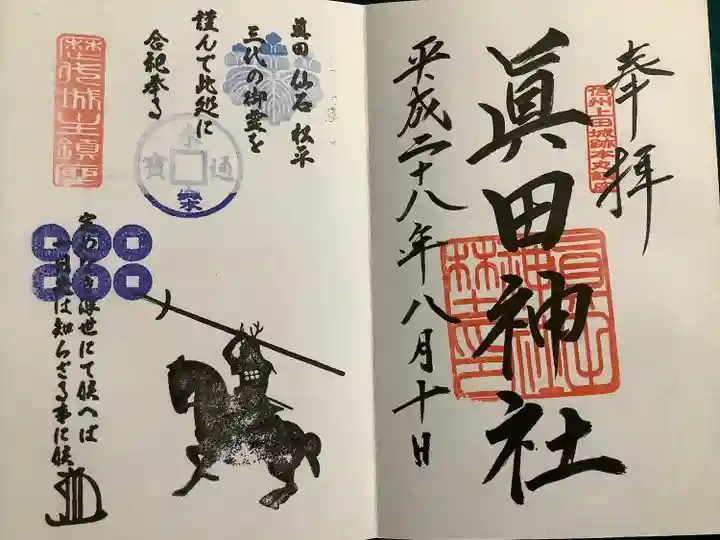 奉拝
信州上田城跡本丸鎮座
眞田神社
平成二十八年八月十日
眞田 仙石 松平
三代の御霊を
謹んで此処に
合祀奉る
歴代城主鎮霊
永
通
寳
樂
定めなき浮世にて候へば
一日先は知らざる事に候